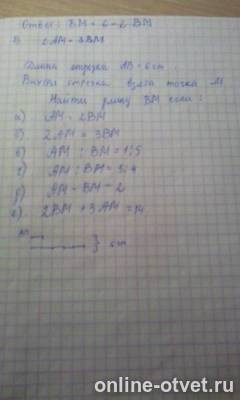 Ответ: BM = 6 - 2 BM
Б 2AM = 3BM
Длина отрезка AB = 6 cm.
Внутри отрезка взята точка M.
Найти длину BM если:
а) AM = 2BM
б) 2AM = 3BM
в) AM : BM = 1:5
г) AM : BM = 5:4
д) AM = BM - 2
е) 2BM + 3AM = 14
AM
} 6 cm
online-otvet.ru